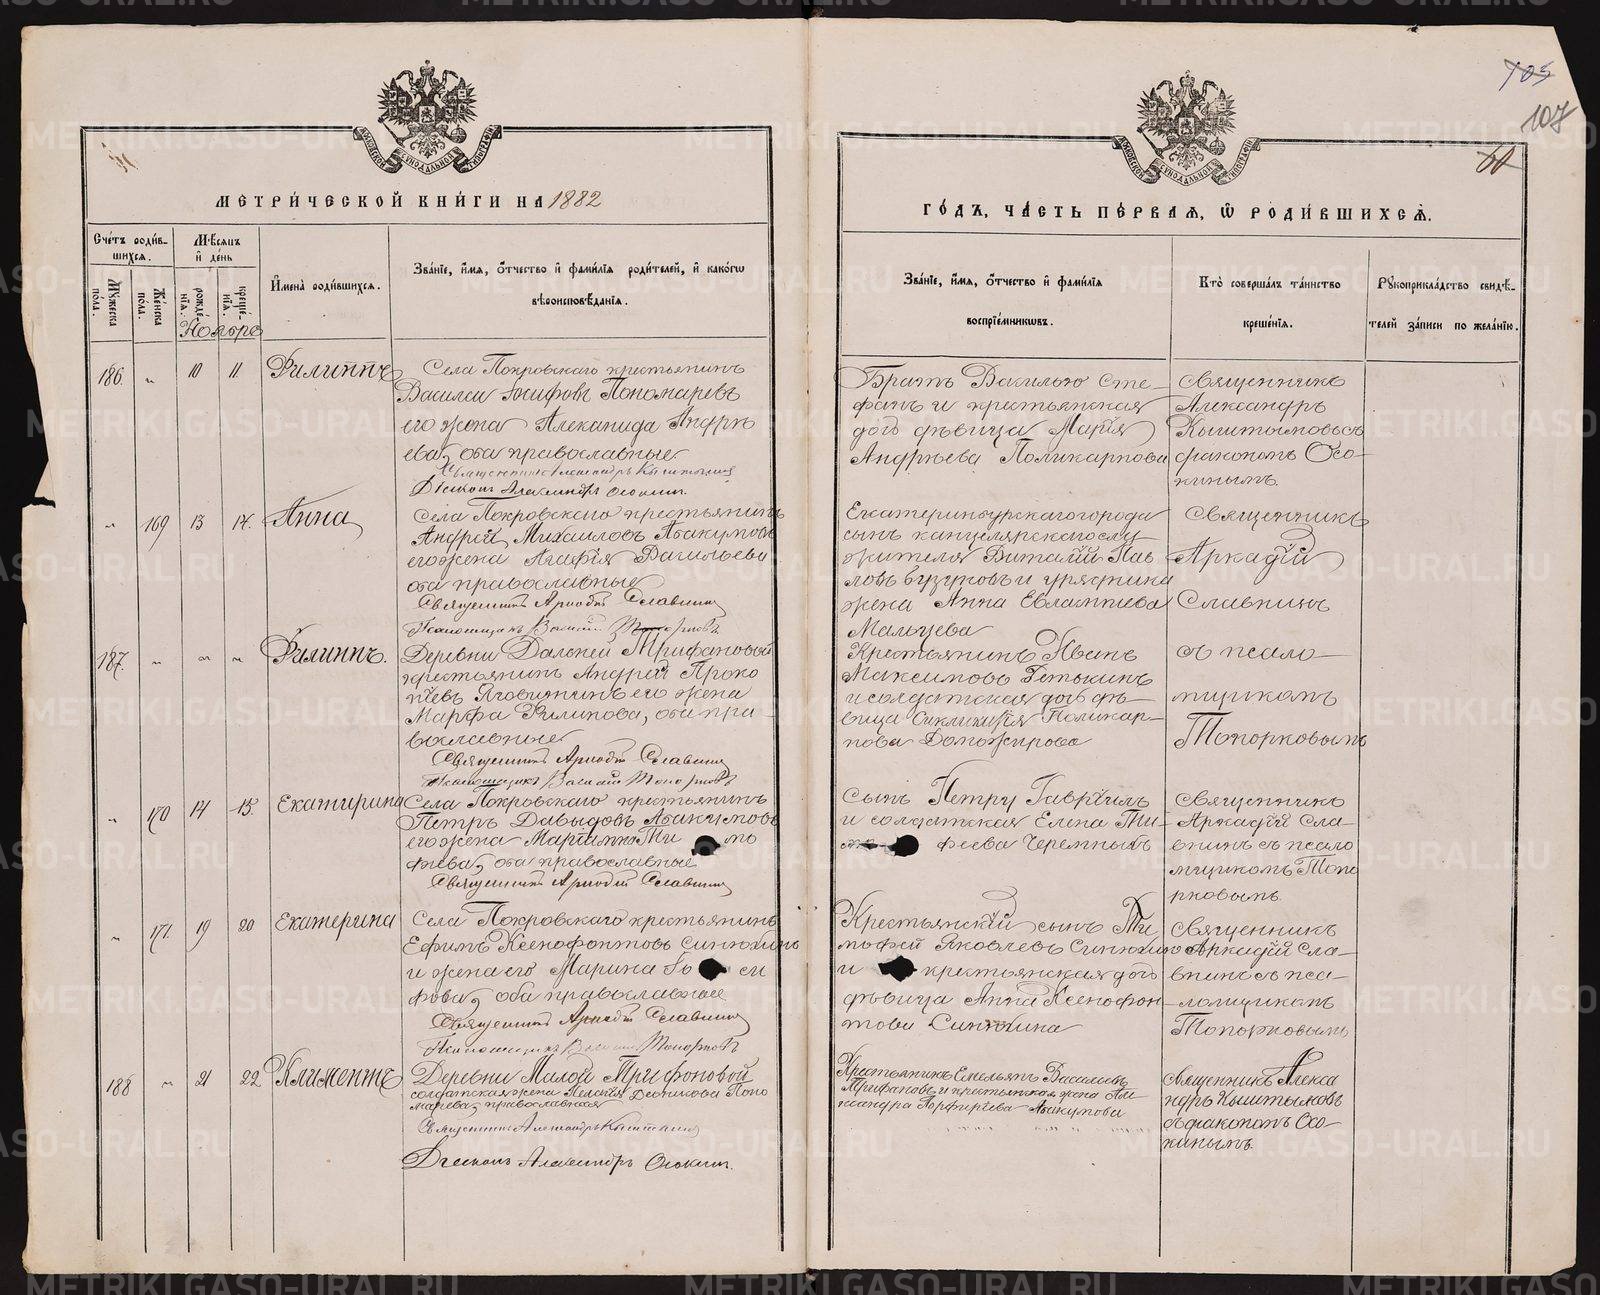 105
107
60
МЕТРИ́ЧЕСКОЙ КНИ́ГИ НА 1882
ГО́ДЪ, ЧА́СТЬ ПЕ́РВАЯ, Ѿ РОДИ́ВШИХСЯ.
Сче́тъ роди́в-
шихся.
Мѣсяцъ
и́ де́нь
Му́жеска по́ла.
Же́нска по́ла.
рожде́-
нїя.
креще́-
нїя.
Ноябрь
Имена̀ роди́вшихся.
Зва́нїе, и́мя, ѻ́тчество и́ фами́лїя роди́телей, и́ како́гѡ
вѣроисповѣ́данїя.
Зва́нїе, и́мя, ѻ́тчество и́ фами́лїя
воспрїе́мникѡвъ.
Кто̀ соверша́лъ та́инство
креще́нїя.
Рꙋкоприкла́дство свидѣ́-
телей за́писи по жела́нїю.
186. „ 10 11 Филиппъ
Села Покровскаго крестьянинъ
Василiй Іосифовъ Пономаревъ
его жена Алекапида Андрѣ
ева, оба православные
Священникъ Александръ Кыштымовъ
Дiаконъ Александръ Осокин.
Братъ Василью Сте-
фанъ и крестьянская
дочь дѣвица Марiя
Андрѣева Поликарпова
Священникъ
Александръ
Кыштымовъ съ
дiакономъ Осо-
кинымъ.
„ 169 13 14. Анна
Села Покровскаго крестьянинъ
Андрей Михаиловъ Абакумовъ
его жена Агафiя Васильева
оба православные
Священникъ Аркадiй Славнинъ
Псаломщикъ Василiй Топорковъ
Екатеринбургскаго города
сынъ канцелярскаго слу
жителя Виталiй Пав
ловъ Бузуновъ и урядника
жена Анна Евлампiева
Мальцева
Священникъ
Аркадiй
Славнинъ
187. „ „ „ Филиппъ.
Деревни Дальней Трифановой
крестьянинъ Андрей Проко
пьевъ Яговитинъ его жена
Марфа Филипова, оба пра-
вославные
Священникъ Аркадiй Славнинъ
Псаломщикъ Василiй Топорковъ
Крестьянинъ Иванъ
Максимовъ Ветькинъ
и солдатская дочь дѣ-
вица Поликар-
пова Доможирова
съ псало-
мщикомъ
Топорковымъ
„ 170 14 15. Екатирина
Села Покровскаго крестьянинъ
Петръ Давыдовъ Абакумовъ
его жена Марiамна Ти мо
фѣева, оба православные
Священникъ Аркадiй Славнинъ
сынъ Петру Гаврiилъ
и солдатская Елена Ти-
мо- феева Черемныхъ
Священникъ
Аркадiй Сла-
внинъ съ псало
мщикомъ Топо
рковымъ.
„ 171. 19 20 Екатерина
Села Покровскаго крестьянинъ
Ефимъ Ксенофонтовъ Синюхинъ
и жена его Марина Іо си
фова, оба православные
Священникъ Аркадiй Славнинъ
Псаломщикъ Василiй Топорковъ
Крестьянскiй сынъ Ти
мофей Яковлевъ Синюхинъ
и крестьянская дочь
дѣвица Анна Ксенофон-
това Синюхина
Священникъ
Аркадiй Сла-
внинъ съ пса-
ломщикомъ
Топорковымъ
188 „ 21 22 Климентъ
Деревни Малой Трифоновой
солдатская жена Пелагiя Деомидова Поно
марева, православная
Священникъ Александръ Кыштымовъ
Дiаконъ Александръ Осокин.
Крестьянинъ Емельянъ Васильевъ
Трифановъ и крестьянская жена Але
ксандра Порфирьева Абакумова
Священникъ Алекса
ндръ Кыштымовъ
съ дiакономъ Осо-
кинымъ.
METRIKI.GASO-URAL.RU